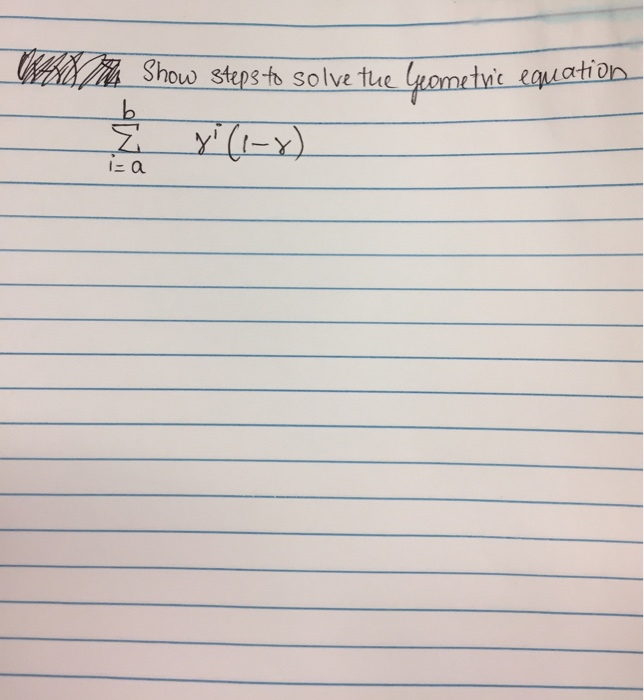 Show steps to solve the Geometric equation
b
Σ γⁱ (1-γ)
i=a